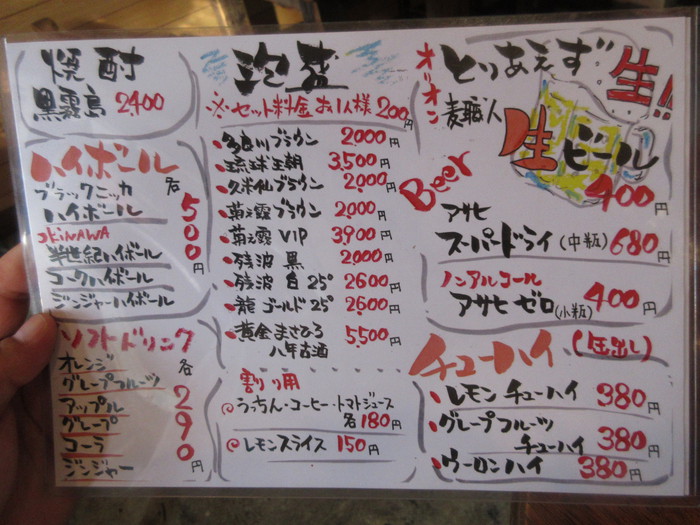 焼酎
黒霧島 2400
ハイボール
各500円
ブラックニッカ
ハイボール
OKINAWA
半世紀ハイボール
コークハイボール
ジンジャーハイボール
ソフトドリンク
各290円
オレンジ
グレープフルーツ
アップル
グレープ
コーラ
ジンジャー
泡盛
※セット料金 お1人様 200円
多良川ブラウン 2000円
琉球王朝 3,500円
久米仙ブラウン 2,000円
菊之露ブラウン 2000円
菊之露VIP 3,900円
残波 黒 2000円
残波 白 25° 2600円
龍 ゴールド 25° 2600円
黄金まさひろ
八年古酒 5,500円
割り用
うっちん・コーヒー・トマトジュース
各180円
レモンスライス 150円
とりあえず生!!
オリオン
麦職人
生ビール
400円
Beer
アサヒ
スーパードライ(中瓶) 680円
ノンアルコール
アサヒ ゼロ(小瓶) 400円
チューハイ (缶出し)
レモンチューハイ 380円
グレープフルーツ
チューハイ 380円
ウーロンハイ 380円